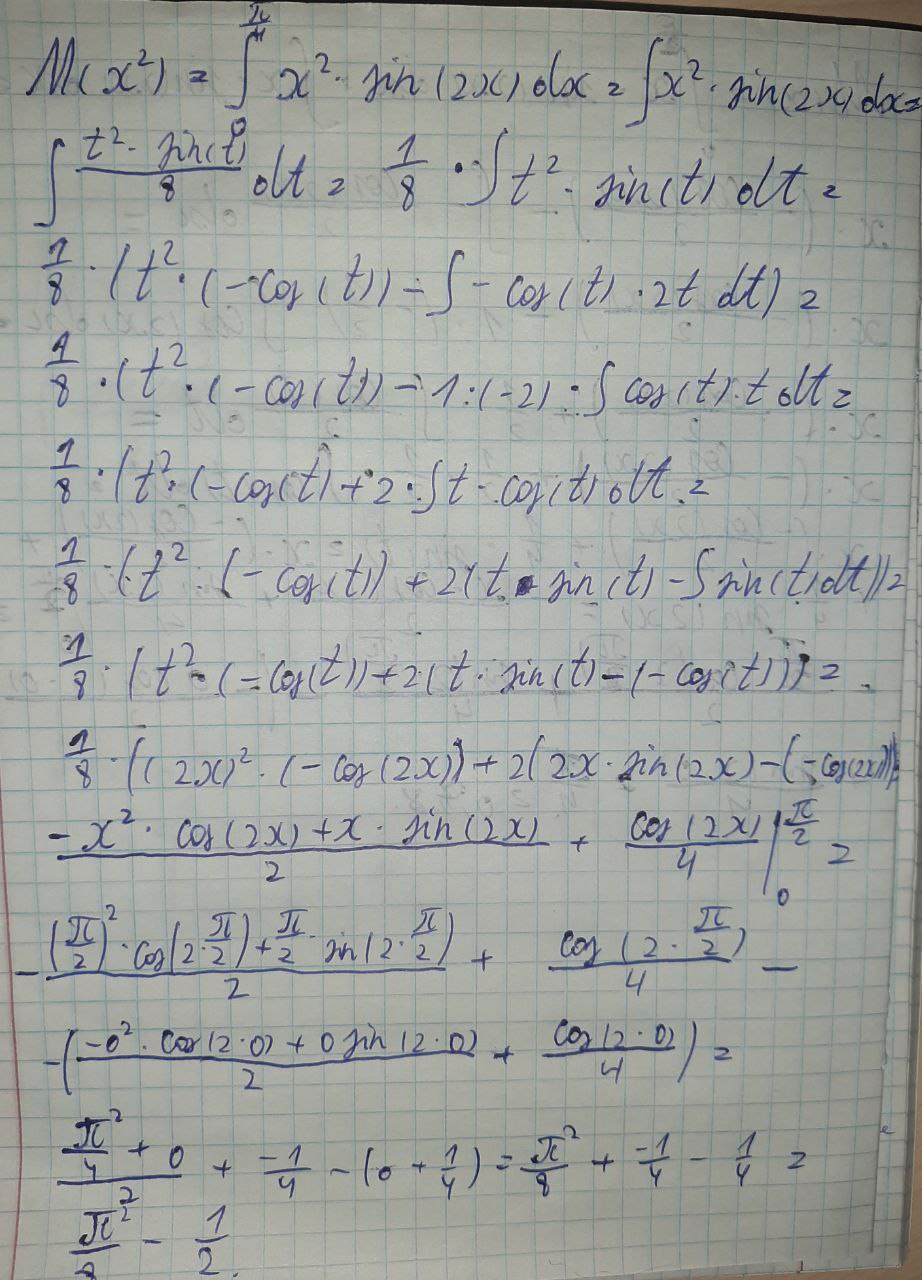 M(x²) = ∫₀^π x² · sin(2x) dx = ∫x² · sin(2x) dx =
∫ (t² · sin(t))/8 dt = 1/8 · ∫ t² · sin(t) dt =
1/8 · (t² · (-cos(t)) - ∫ - cos(t) · 2t dt) =
1/8 · (t² · (-cos(t)) - 1 · (-2) · ∫ cos(t) · t dt =
1/8 · (t² · (-cos(t) + 2 · ∫ t · cos(t) dt =
1/8 · (t² · (-cos(t)) + 2(t · sin(t) - ∫ sin(t) dt)) =
1/8 · (t² · (-cos(t)) + 2 · (t · sin(t) - (-cos(t))) =
1/8 · ((2x)² · (-cos(2x)) + 2(2x · sin(2x) - (-cos(2x)))=
(-x² · cos(2x) + x · sin(2x))/2 + cos(2x)/4 |₀^(π/2) =
-((π/2)² · cos(2 · π/2) + π/2 · sin(2 · π/2))/2 + cos(2 · π/2)/4 -
-((-0² · cos(2·0) + 0 sin(2·0))/2 + cos(2·0)/4) =
(π²/4 + 0)/2 + -1/4 - (0 + 1/4) = π²/8 + -1/4 - 1/4 =
π²/8 - 1/2.